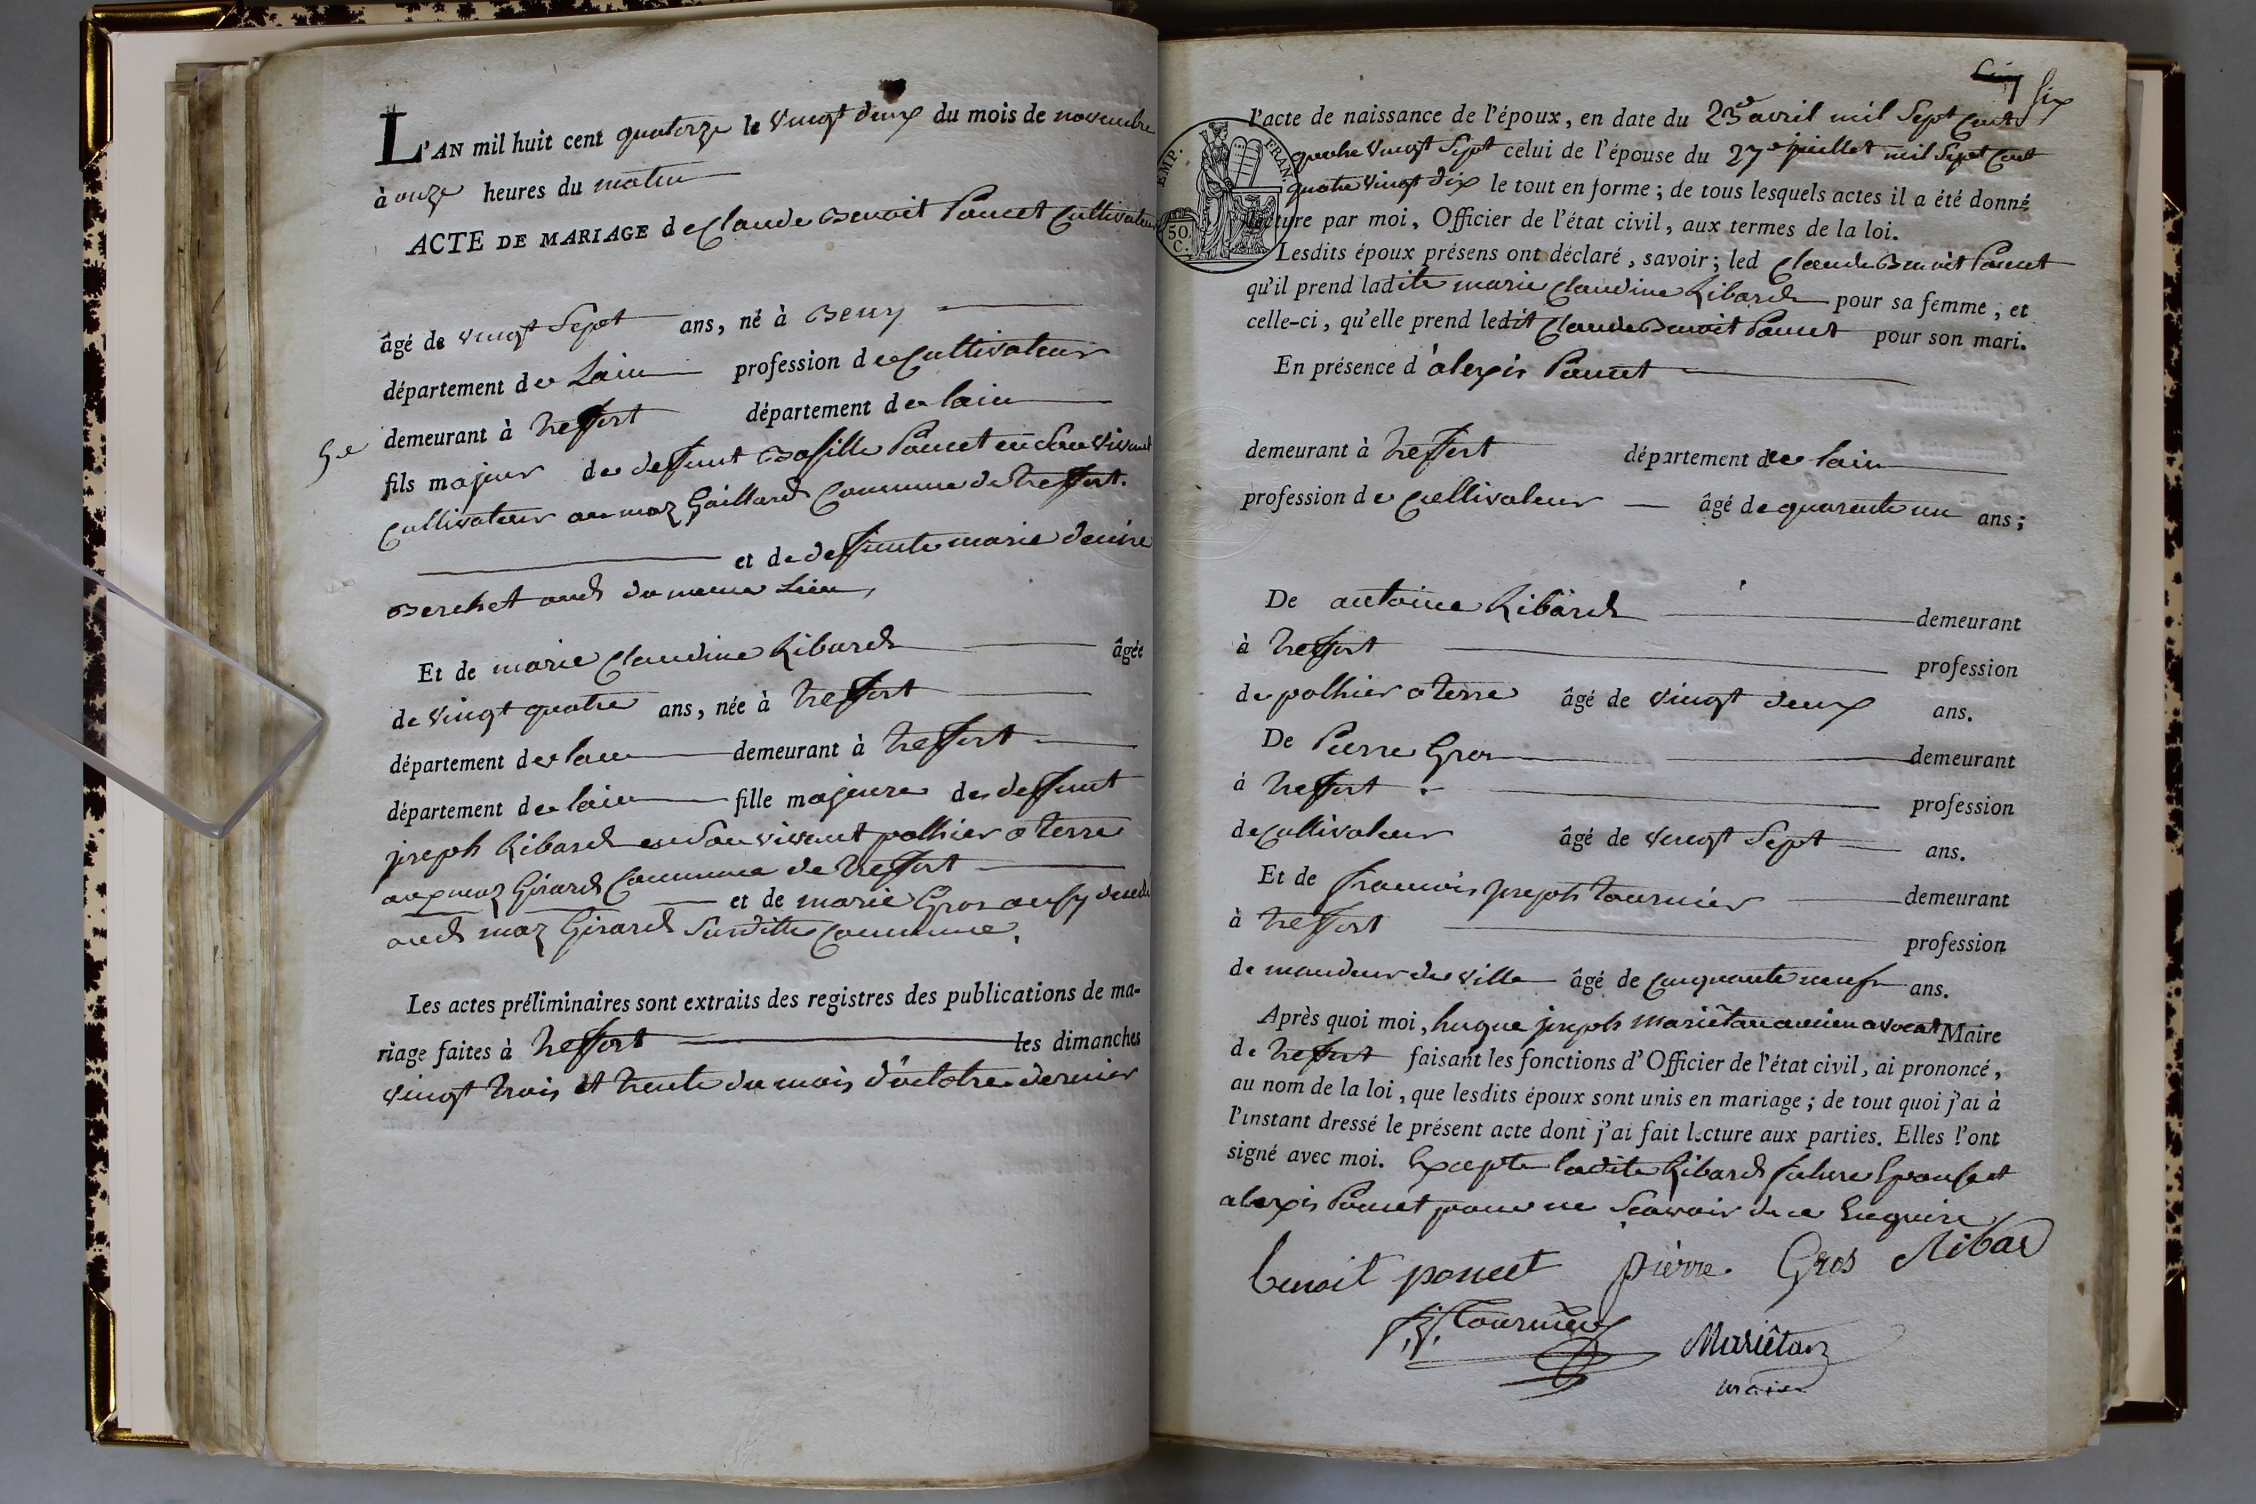 L'AN mil huit cent quatorze le vingt deux du mois de novembre
à onze heures du matin
ACTE DE MARIAGE de Claude Benoit Poncet Cultivateur
âgé de vingt Sept ans, né à Beny
département de Lain profession de Cultivateur
5e demeurant à treffort département de lain
fils majeur de deffunt Basille Poncet en Son vivant
Cultivateur au maz Gaillard Commune de treffort.
et de deffunte marie denise
Berchet aud du meme Lieu,
Et de marie Claudine Ribard âgée
de vingt quatre ans, née à treffort
département de lain demeurant à treffort
département de lain fille majeure de deffunt
joseph Ribard en Son vivant pothier a terre
au maz Girard Commune de treffort
et de marie Gros
aud maz Girard Susditte Commune.
Les actes préliminaires sont extraits des registres des publications de ma-
riage faites à treffort les dimanches
vingt trois et trente du mois d'octobre dernier
Cinq Six
l'acte de naissance de l'époux, en date du 23e avril mil Sept Cents
quatre vingt Sept celui de l'épouse du 27e juillet mil Sept Cent
quatre vingt dix le tout en forme; de tous lesquels actes il a été donné
lecture par moi, Officier de l'état civil, aux termes de la loi.
EMP. FRAN.
50 C.
Lesdits époux présens ont déclaré, savoir; led Claude Benoit Poncet
qu'il prend ladite marie Claudine Ribard pour sa femme, et
celle-ci, qu'elle prend ledit Claude Benoit Poncet pour son mari.
En présence d'alexis Poncet
demeurant à treffort département de lain
profession de Cultivateur âgé de quarente un ans;
De antoine Ribard demeurant
à treffort profession
de pothier a terre âgé de vingt deux ans.
De Pierre Gros demeurant
à treffort profession
de Cultivateur âgé de vingt Sept ans.
Et de francois joseph tournier demeurant
à treffort profession
de mandeur de ville âgé de Cinquante neuf ans.
Après quoi moi, hugue joseph Mariêtan ancien avocat Maire
de treffort faisant les fonctions d'Officier de l'état civil, ai prononcé,
au nom de la loi, que lesdits époux sont unis en mariage; de tout quoi j'ai à
l'instant dressé le présent acte dont j'ai fait lecture aux parties. Elles l'ont
signé avec moi. Excepte ladite Ribard future Epouse et
alexis Poncet pour ne Scavoir de ce Enquis
benoit poncet pierre Gros Ribar
f.j. Tournier Mariêtan
maire